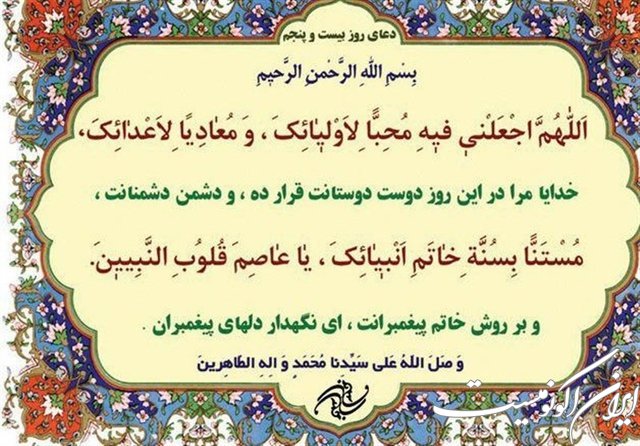 دعای روز بیست و پنجم
بِسْمِ اللهِ الرَّحْمنِ الرَّحیمِ
اَللّٰهُمَّ اجْعَلْنی فیهِ مُحِبًّا لِاَوْلِیٰائِکَ ، وَ مُعٰادِیًا لِاَعْدٰائِکَ،
خدایا مرا در این روز دوست دوستانت قرار ده ، و دشمن دشمنانت ،
مُسْتَنًّا بِسُنَّةِ خٰاتَمِ اَنْبِیٰائِکَ ، یٰا عٰاصِمَ قُلُوبِ النَّبِیینَ.
و بر روش خاتم پیغمبرانت ، ای نگهدار دلهای پیغمبران .
وَ صَلَ اللهُ عَلی سَیِّدِنا مُحَمَدٍ وَ الِهِ الطّاهِرینَ
ایران اکونومیست